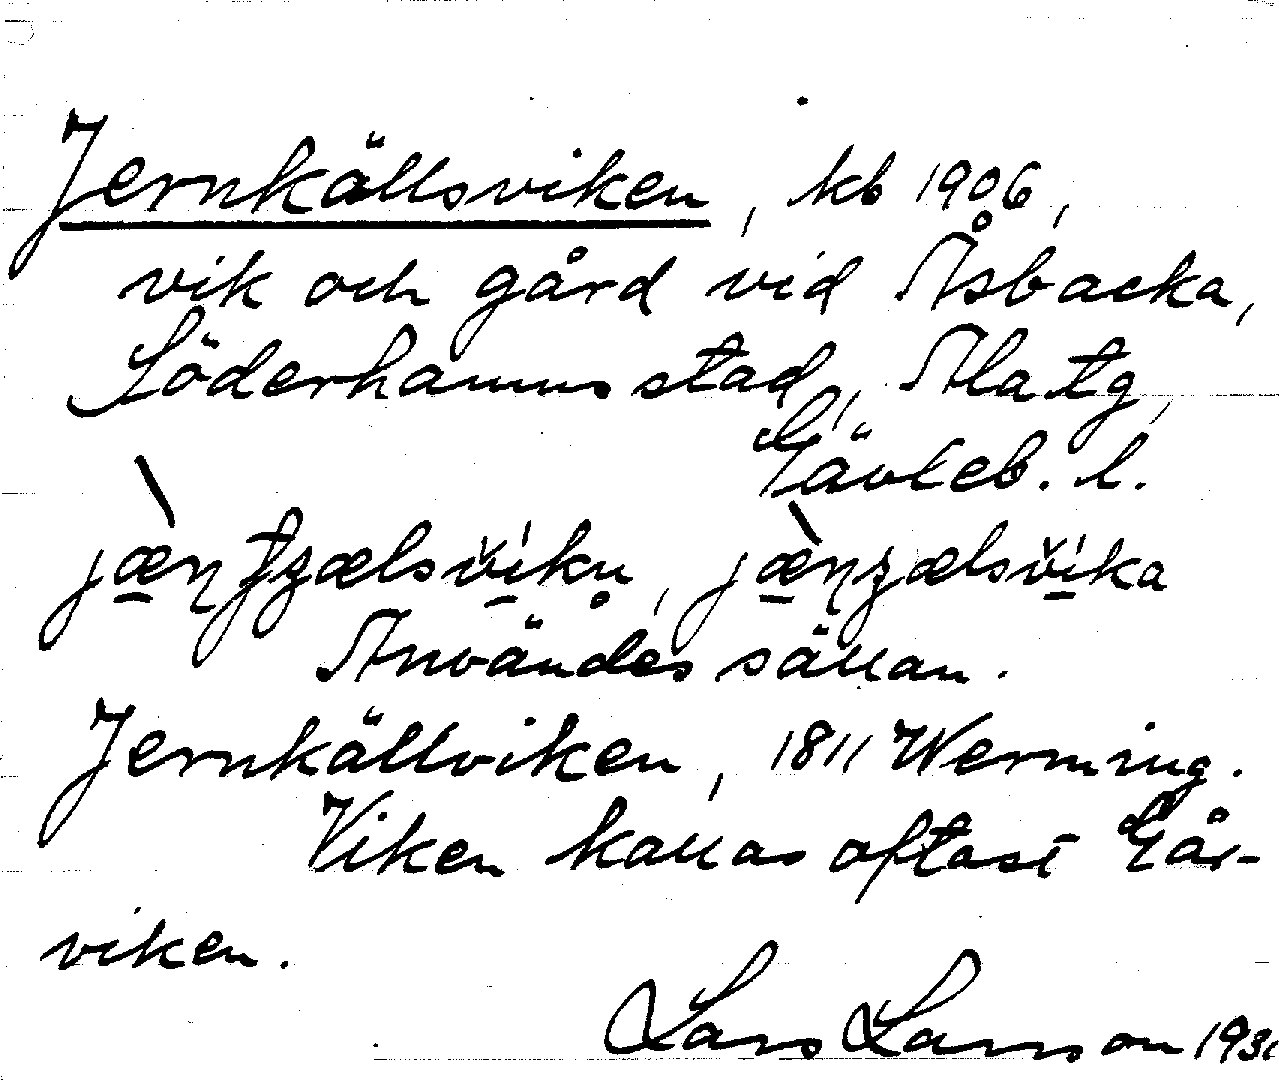 Jernkällsviken, kb 1906,
vik och gård vid Åsbacka,
Söderhamns stad, Ala tg,
Gävleb. l.
Användes sällan.
Jernkällviken, 1811 Werming.
Viken kallas oftast Går-
viken.
Lars Larsson 193